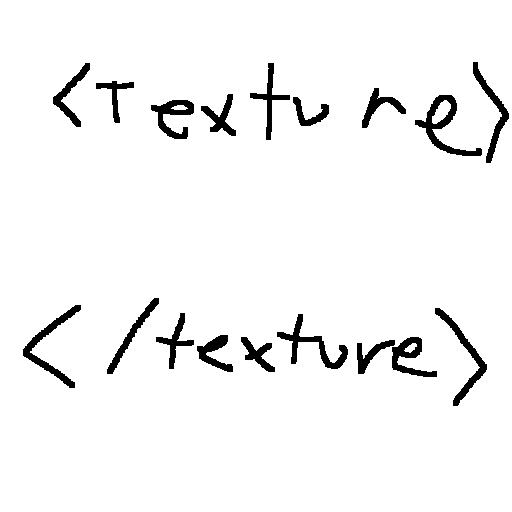 <Texture>
</texture>